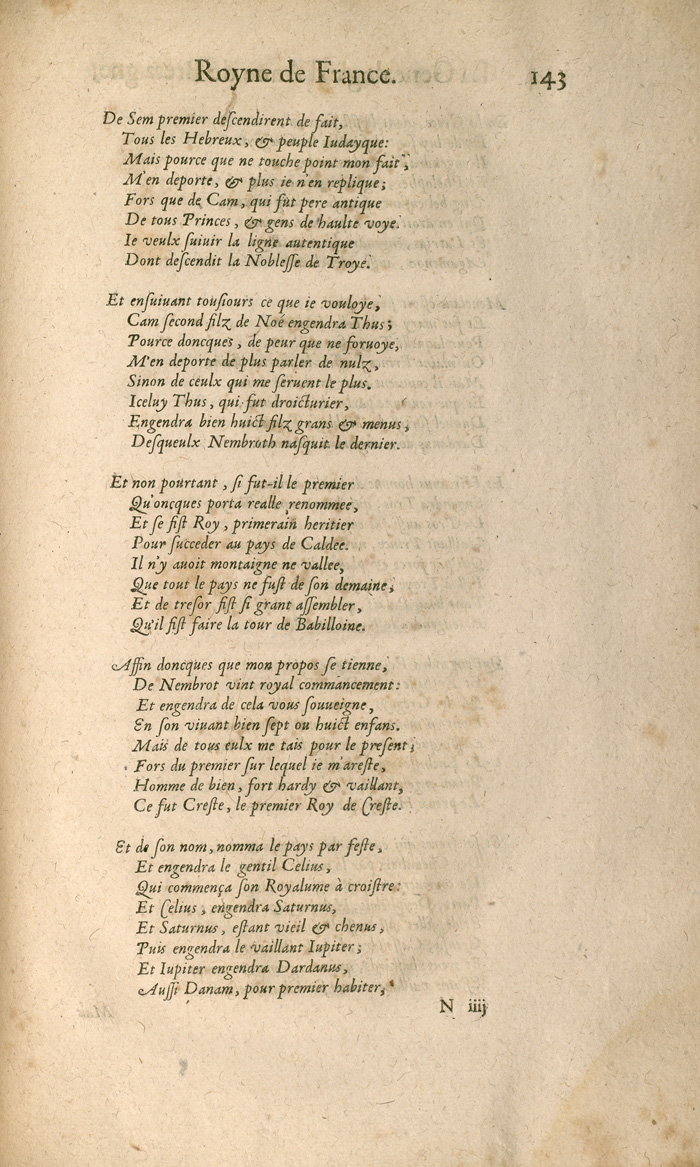 Royne de France. 143
De Sem premier deſcendirent de fait,
Tous les Hebreux, & peuple Iudayque:
Mais pource que ne touche point mon fait,
M'en deporte, & plus ie n'en replique;
Fors que de Cam, qui fut pere antique
De tous Princes, & gens de haulte voye.
Ie veulx ſuiuir la ligne autentique
Dont deſcendit la Nobleſſe de Troye.
Et enſuiuant touſiours ce que ie vouloye,
Cam ſecond filz de Noé engendra Thus;
Pource doncques, de peur que ne foruoye,
M'en deporte de plus parler de nulz,
Sinon de ceulx qui me ſeruent le plus.
Iceluy Thus, qui fut droicturier,
Engendra bien huict filz grans & menus,
Deſqueulx Nembroth naſquit le dernier.
Et non pourtant, ſi fut-il le premier
Qu'oncques porta realle renommee,
Et ſe fiſt Roy, primerain heritier
Pour ſucceder au pays de Caldee.
Il n'y auoit montaigne ne vallee,
Que tout le pays ne fuſt de ſon demaine;
Et de treſor fiſt ſi grant aſſembler,
Qu'il fiſt faire la tour de Babilloine.
Affin doncques que mon propos ſe tienne,
De Nembrot vint royal commancement:
Et engendra de cela vous ſouueigne,
En ſon viuant bien ſept ou huict enfans.
Mais de tous eulx me tais pour le preſent;
Fors du premier ſur lequel ie m'areſte,
Homme de bien, fort hardy & vaillant,
Ce fut Creſte, le premier Roy de Creſte.
Et de ſon nom, nomma le pays par feſte,
Et engendra le gentil Celius,
Qui commença ſon Royalume à croiſtre:
Et Celius, engendra Saturnus,
Et Saturnus, eſtant vieil & chenus,
Puis engendra le vaillant Iupiter;
Et Iupiter engendra Dardanus,
Auſſi Danam, pour premier habiter,
N iiij